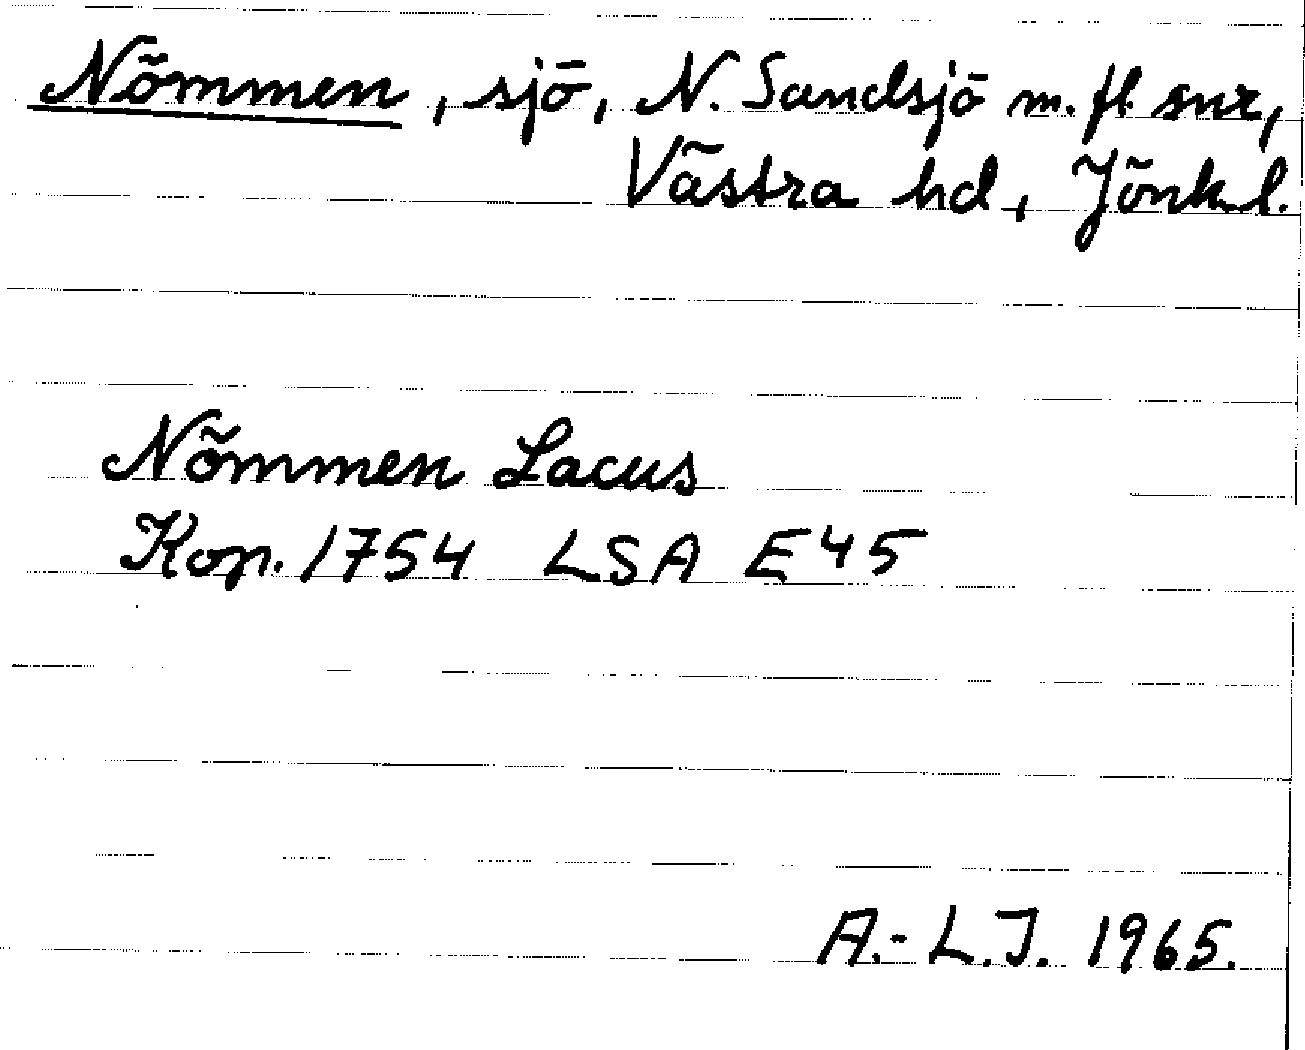 Nömmen, sjö, N. Sandsjö m. fl. snr,
Västra hd, Jönk. l.
Nömmen Lacus
Kop. 1754 LSA E45
A.-L.J. 1965.